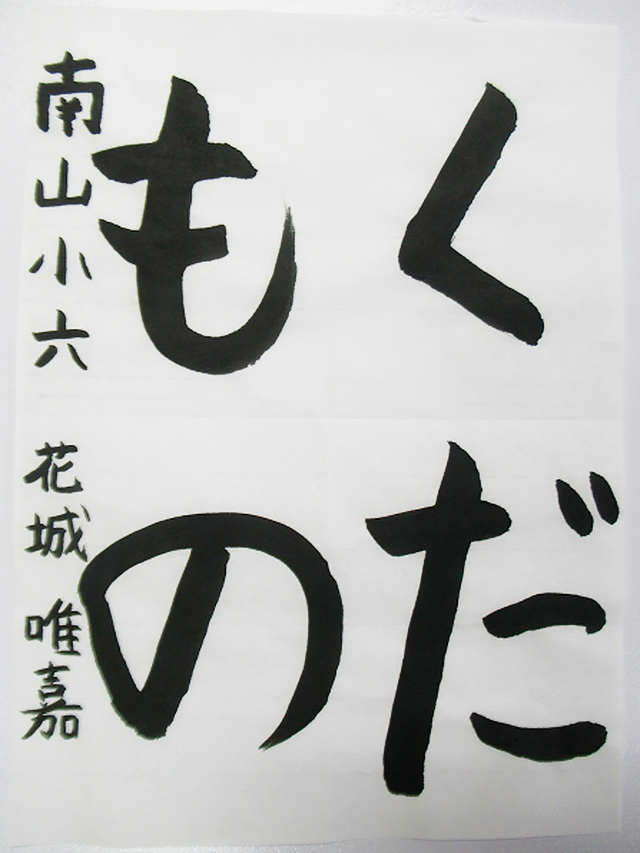 くだ
もの
南山小六 花城 唯嘉